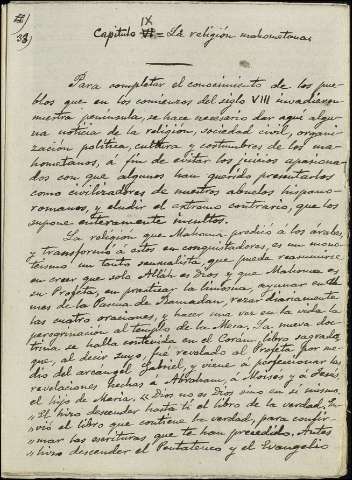 IX
Capitulo VI = La religión mahometana
Para completar el conocimiento de los pue-
blos que en los comienzos del siglo VIII invadieron
nuestra península, se hace necesario dar aquí algu-
na noticia de la religión, sociedad civil, organi-
zación política, cultura y costumbres de los ma-
hometanos, á fin de evitar los juicios apasiona-
dos con que algunos han querido presentarlos
como civilizadores de nuestros abuelos hispano-
romanos, y eludir el extremo contrario, que los
supone enteramente incultos.
La religión que Mahoma predicó á los árabes,
y transformó á estos en conquistadores, es un mono-
teismo un tanto sensualista, que puede resumirse
en creer que solo Alláh es Dios y que Mahoma es
su Profeta, en practicar la limosna, ayunar en el
mes de la Pascua de Ramadan, rezar diariamente
las cuatro oraciones, y hacer una vez en la vida la
peregrinación al templo de la Meca. La nueva doc-
trina se halla contenida en el Corán, libro sagrado,
que, al decir suyo, fué revelado al Profeta por me-
dio del arcángel Gabriel, y viene á perfeccionar las
revelaciones hechas á Abraham, á Moisés y á Jesús,
el hijo de María. « Dios no es Dios sino en sí mismo.
» El hizo descender hasta tí el libro de la verdad. En-
» vió el libro que contiene la verdad, para confir-
» mar las escrituras que te han precedido. Antes
» hizo descender el Pentateuco y el Evangelio